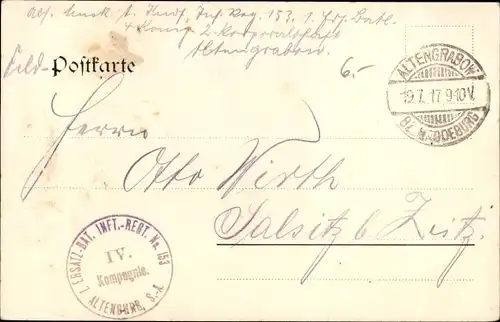 Inf. Reg. 153, 1. Ers. Batl.
4 Komp. 2. Korporalschaft
Altengrabow
Feld-Postkarte
6.-
ALTENGRABOW
19.7.17.9-10V.
BZ. MAGDEBURG
Herrn
Otto Wirth
Salsitz b Zeitz.
1. ERSATZ-BAT. INFT.-REGT. No. 153
IV.
Kompagnie.
ALTENBURG, S.-A.